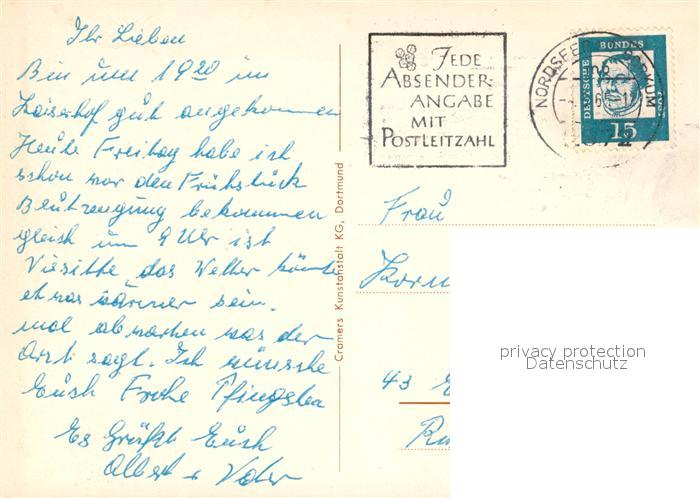 Ihr Lieben
Bin um 19 20 im
Kaiserhof gut angekommen
Heute Freitag habe ich
schon vor den Frühstück
Blutzeugung bekommen
gleich um 9 Uhr ist
Viesitte das Wetter könnte
etwas wärmer sein.
mal abwarten was der
Arzt sagt. Ich wünsche
Euch Frohe Pfingsten
Es Grüßt Euch
Albert + Vater
Cramers Kunstanstalt KG, Dortmund
JEDE
ABSENDER-
ANGABE
MIT
POSTLEITZAHL
NORDSEE BORKUM
DEUTSCHE BUNDES
15
Frau
43
privacy protection
Datenschutz